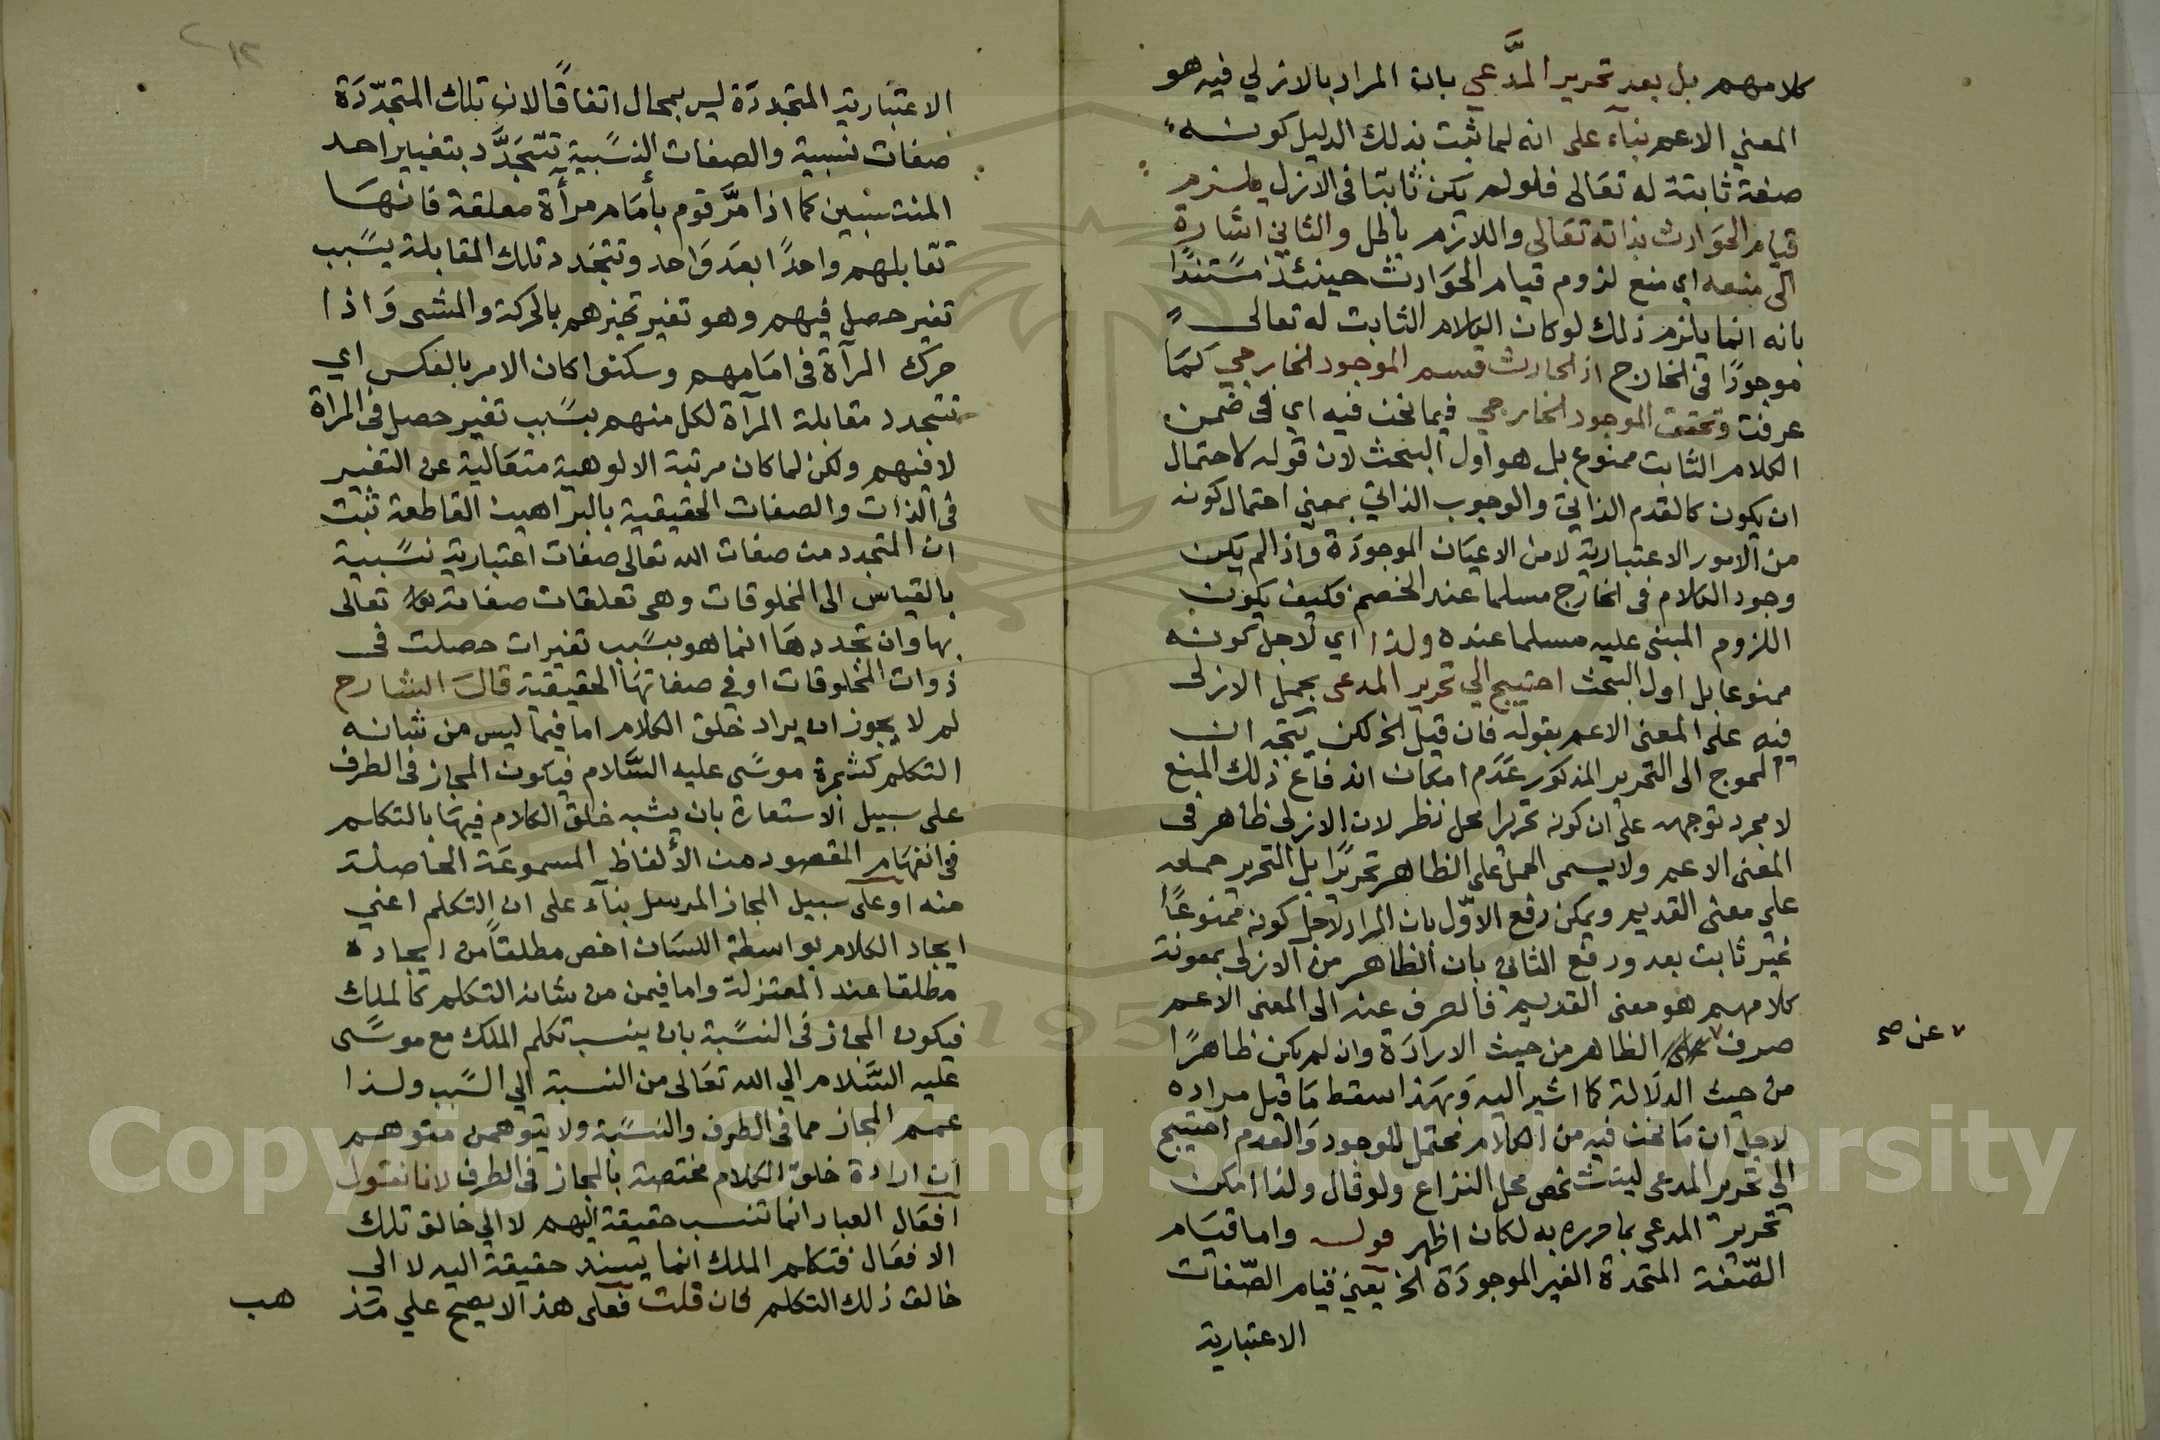 كلامهم بل بعد تحرير المدَّعي بان المراد بالازلي فيه هو
المعني الاعم بنآء على انه لما ثبت بذلك الدليل كونه
صفة ثابتة له تعالى فلو لم يكن ثابتا فى الازل يلزم
قيام الحوادث بذاته تعالى واللازم باطل والثاني اشارة
الى منعه اي منع لزوم قيام الحوادث حينئذ مستندًا
بانه انما يلزم ذلك لو كان الكلام الثابت له تعالى
موجودًا فى الخارج اذ الحادث قسم الموجود الخارجي كما
عرفت وتحقق الموجود الخارجي فيما نحن فيه اي في ضمن
الكلام الثابت ممنوع بل هو اول البحث لان قوله لاحتمال
ان يكون كالقدم الذاتي والوجوب الذاتي بمعني احتمال كونه
من الامور الاعتبارية لا من الاعيان الموجودة واذا لم يكن
وجود الكلام فى الخارج مسلما عند الخصم فكيف يكون
اللزوم المبنى عليه مسلما عنده ولذا اي لاجل كونه
ممنوعا بل اول البحث احتيج الي تحرير المدعى بجعل الازلى
فيه على المعنى الاعم بقوله فان قيل الخ لكن يتجه ان
المحوج الى التحرير المذكور عدم امكان اندفاع ذلك المنع
لا مجرد توجهه على ان كونه تحريرا محل نظر لان الازلى ظاهر فى
المعنى الاعم ولا يسمى الحمل على الظاهر تحريرًا بل التحرير حمله
علي معنى القديم ويمكن دفع الاوّل بان المراد لاجل كونه ممنوعًا
غير ثابت بعد ودفع الثاني بان الظاهر من الازلى بمعونة
كلامهم هو معنى القديم فالصرف عنه الى المعنى الاعم
صرف ٧ على الظاهر من حيث الارادة وان لم يكن ظاهرًا
٧ عن صح
من حيث الدلالة كما اشير اليه وبهذا سقط ما قيل مراده
لاجل ان ما نحن فيه من الكلام محتمل للوجود والعدم احتيج
الي تحرير المدعى ليتشخص محل النزاع ولو قال ولذا امكن
تحرير المدعى بما حرره به لكان اظهر قوله واما قيام
الصّفة المتجددة الغير الموجودة الخ يعني قيام الصّفات
الاعتبارية
١٢
الاعتبارية المتجددة ليس بمحال اتفاقًا لان تلك المتجدّدة
صفات نسبية والصفات النسبية تتجدَّد بتغيير احد
المنتسبين كما اذا مرَّ قوم بأمام مرأة معلقة فانها
تقابلهم واحدًا بعد واحد وتتجدد تلك المقابلة بسبب
تغير حصل فيهم وهو تغير تحيزهم بالحركة والمشى واذا
حرك المرآة فى امامهم وسكنوا كان الامر بالعكس اي
تتجدد مقابلة المرآة لكل منهم بسبب تغير حصل فى المراة
لا فيهم ولكن لما كان مرتبة الالوهية متعالية عن التغير
فى الذات والصفات الحقيقية بالبراهين القاطعة ثبت
ان المتجدد من صفات الله تعالى صفات اعتبارية نسبية
بالقياس الى المخلوقات وهى تعلقات صفاته تعالى
بها وان تجددها انما هو بسبب تغيرات حصلت فى
ذوات المخلوقات او في صفاتها الحقيقية قال الشارح
لم لا يجوز ان يراد خلق الكلام اما فيما ليس من شانه
التكلم كشجرة موسى عليه السَّلام فيكون المجاز فى الطرف
على سبيل الاستعارة بان يشبه خلق الكلام فيها بالتكلم
فى انفهام المقصود من الألفاظ المسموعة الحاصلة
منه او على سبيل المجاز المرسل بنآء على ان التكلم اعني
ايجاد الكلام بواسطة اللسان اخص مطلقاً من ايجاده
مطلقا عند المعتزلة واما فيمن من شانه التكلم كالملك
فيكون المجاز فى النسبة بان ينسب تكلم الملك مع موسى
عليه السَّلام الي الله تعالى من النسبة الي السبب ولذا
عمم المجاز مما فى الطرف والنسبة ولا يتوهمن متوهم
ان ارادة خلق الكلام مختصة بالمجاز فى الطرف لانا نقول
افعال العباد انما تنسب حقيقة اليهم لا الي خالق تلك
الافعال فتكلم الملك انما يسند حقيقة اليه لا الي
خالق ذلك التكلم فان قلت فعلى هذا لا يصح علي مذ
هب
Copyright © King Saud University
1957